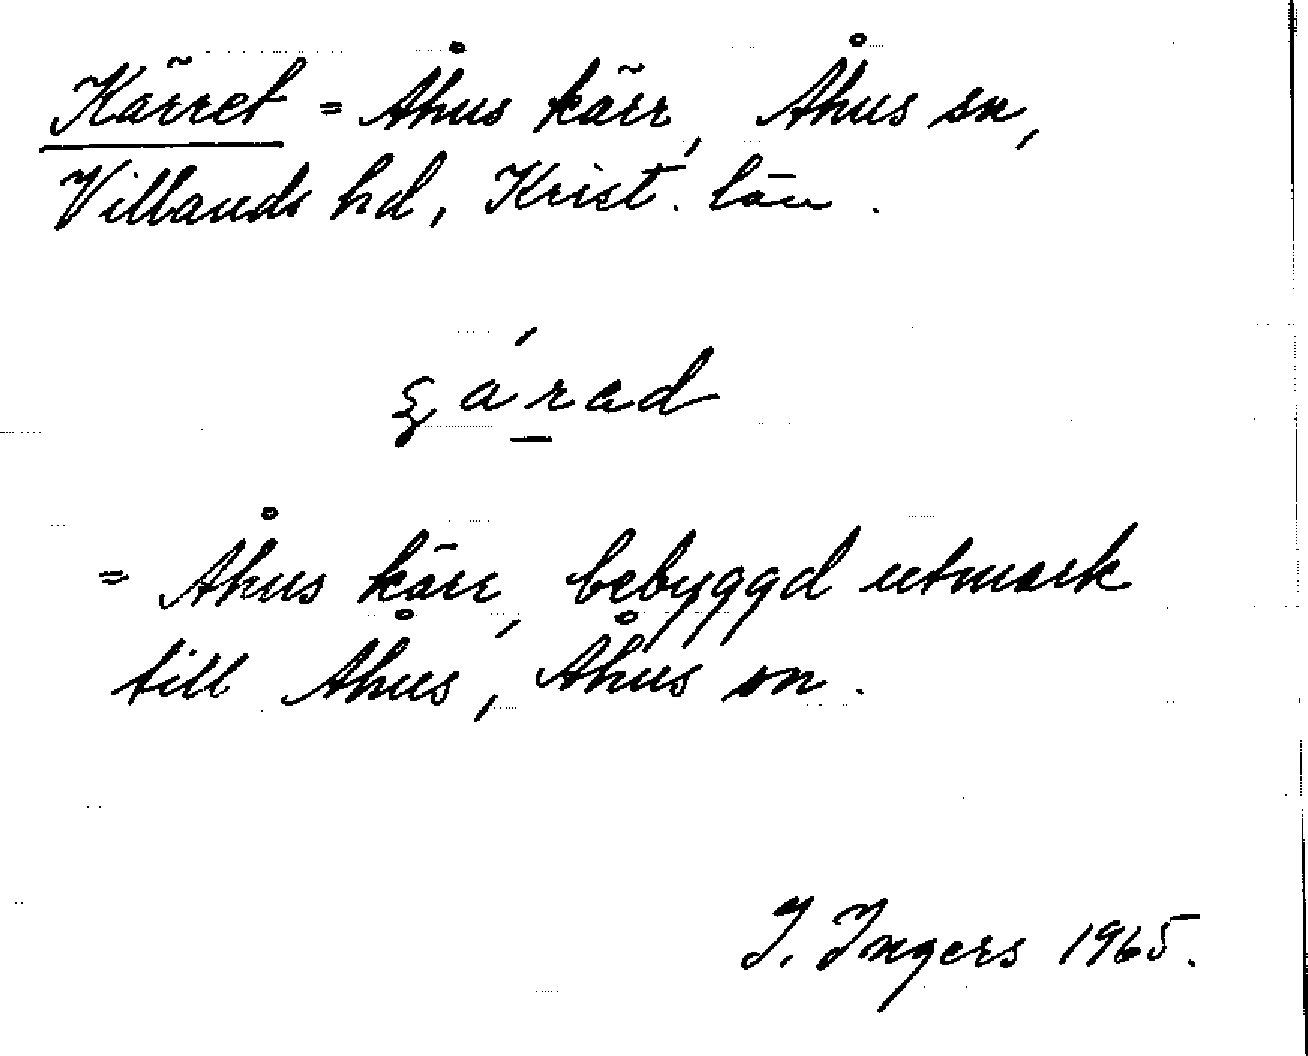 Kärret = Åhus kärr, Åhus sn,
Villands hd, Krist. län.
= Åhus kärr, bebyggd utmark
till Åhus, Åhus sn.
I. Ingers 1965.